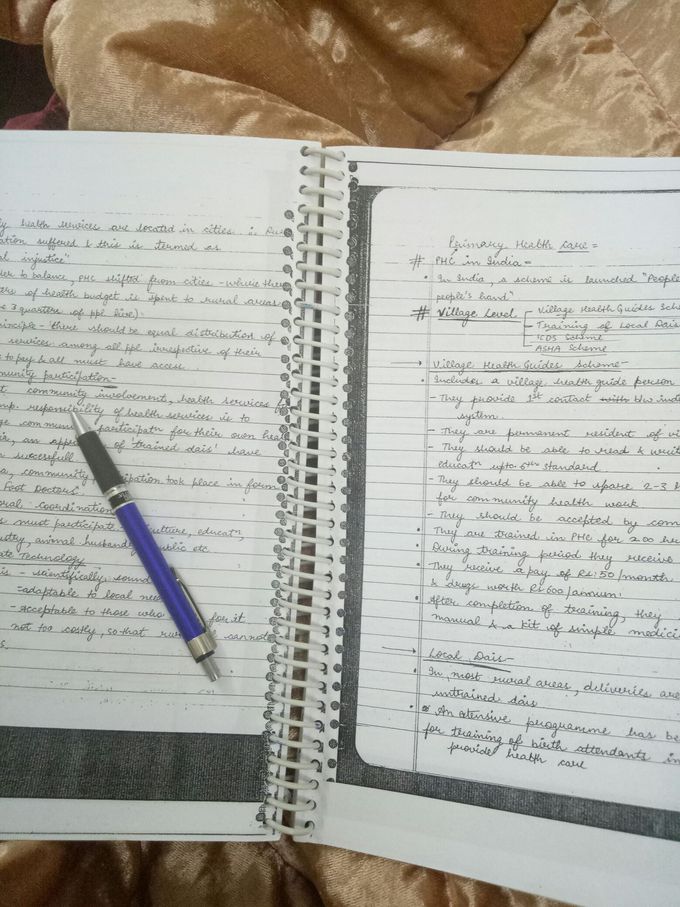 health services are located in cities ∴ Rur
ation suffered & this is termed as
al injustice"
der to balance, PHC shifted from cities - where three
ters of health budget is spent to rural areas
e 3 quarters of ppl live).
inciple - there should be equal distribution of
services among all ppl irrespective of their
to pay & all must have access.
munity participation-
community involvement, health services f
mp. responsibility of health services is to
ge community participatn for their own heal
an of 'trained dais' have
n successfull
a, community participation took place in form
Foot Doctors'.
oral - coordination
s must participate culture, educatn,
ustry, animal husbandry, public etc
ate Technology
is - scientifically sound
- adaptable to local needs
- acceptable to those who for it
not too costly, so that cannot
s.
Primary Health Care =
# PHC in India =
• In India, a scheme is launched "People
people's hand"
# Village Level
Village Health Guides Sche
Training of Local Dais
ICDS Scheme
ASHA Scheme
→ Village Health Guides Scheme-
• Includes a village health guide person
- They provide 1st contact with b/w indi
system.
- They are permanent resident of vi
- They should be able to read & write
educatn upto 6th standard.
- They should be able to spare 2-3 h
for community health work
- They should be accepted by com
• They are trained in PHC for 200 hr
• During training period they receive
• They receive a pay of Rs. 50/month
& drugs worth Rs 600/annum.
• After completion of training, they
manual & a kit of simple medici
→ Local Dais-
• In most rural areas, deliveries are
untrained dais
• An extensive programme has be
for training of birth attendants in
provide health care